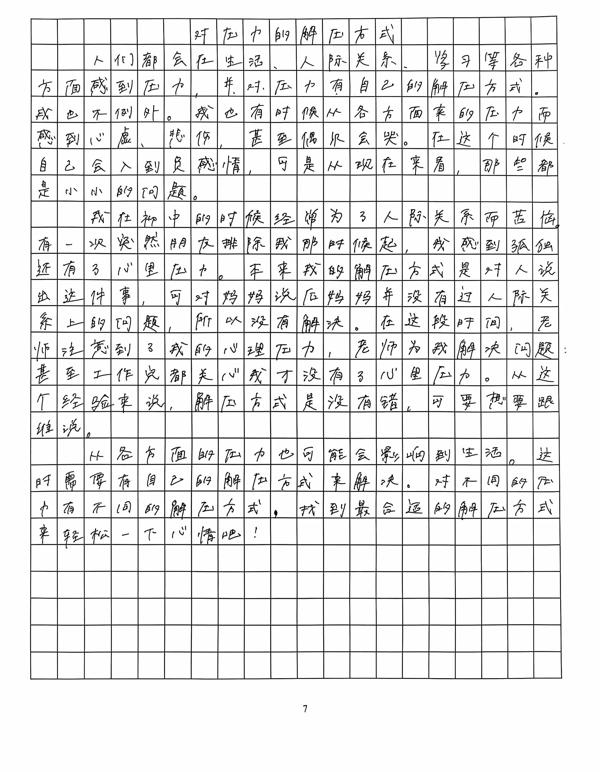 对压力的解压方式
人们都会在生活、人际关系、学习等各种
方面感到压力，并对压力有自己的解压方式。
我也不例外。我也有时候从各方面来的压力而
感到心虚、悲伤，甚至偶尔会哭。在这个时候
自己会入到负感情，可是从现在来看，那些都
是小小的问题。
我在初中的时候经常为了人际关系而苦恼。
有一次突然朋友排除我那时候起，我感到孤独
还有了心里压力。本来我的解压方式是对人说
出这件事，可对妈妈说后妈妈并没有过人际关
系上的问题，所以没有解决。在这段时间，老
师注意到了我的心理压力，老师为我解决问题
甚至工作完都关心我才没有了心里压力。从这
个经验来说，解压方式是没有错，可要想要跟
谁说。
从各方面的压力也可能会影响到生活。这
时需要有自己的解压方式来解决。对不同的压
力有不同的解压方式。找到最合适的解压方式
来轻松一下心情吧！
7